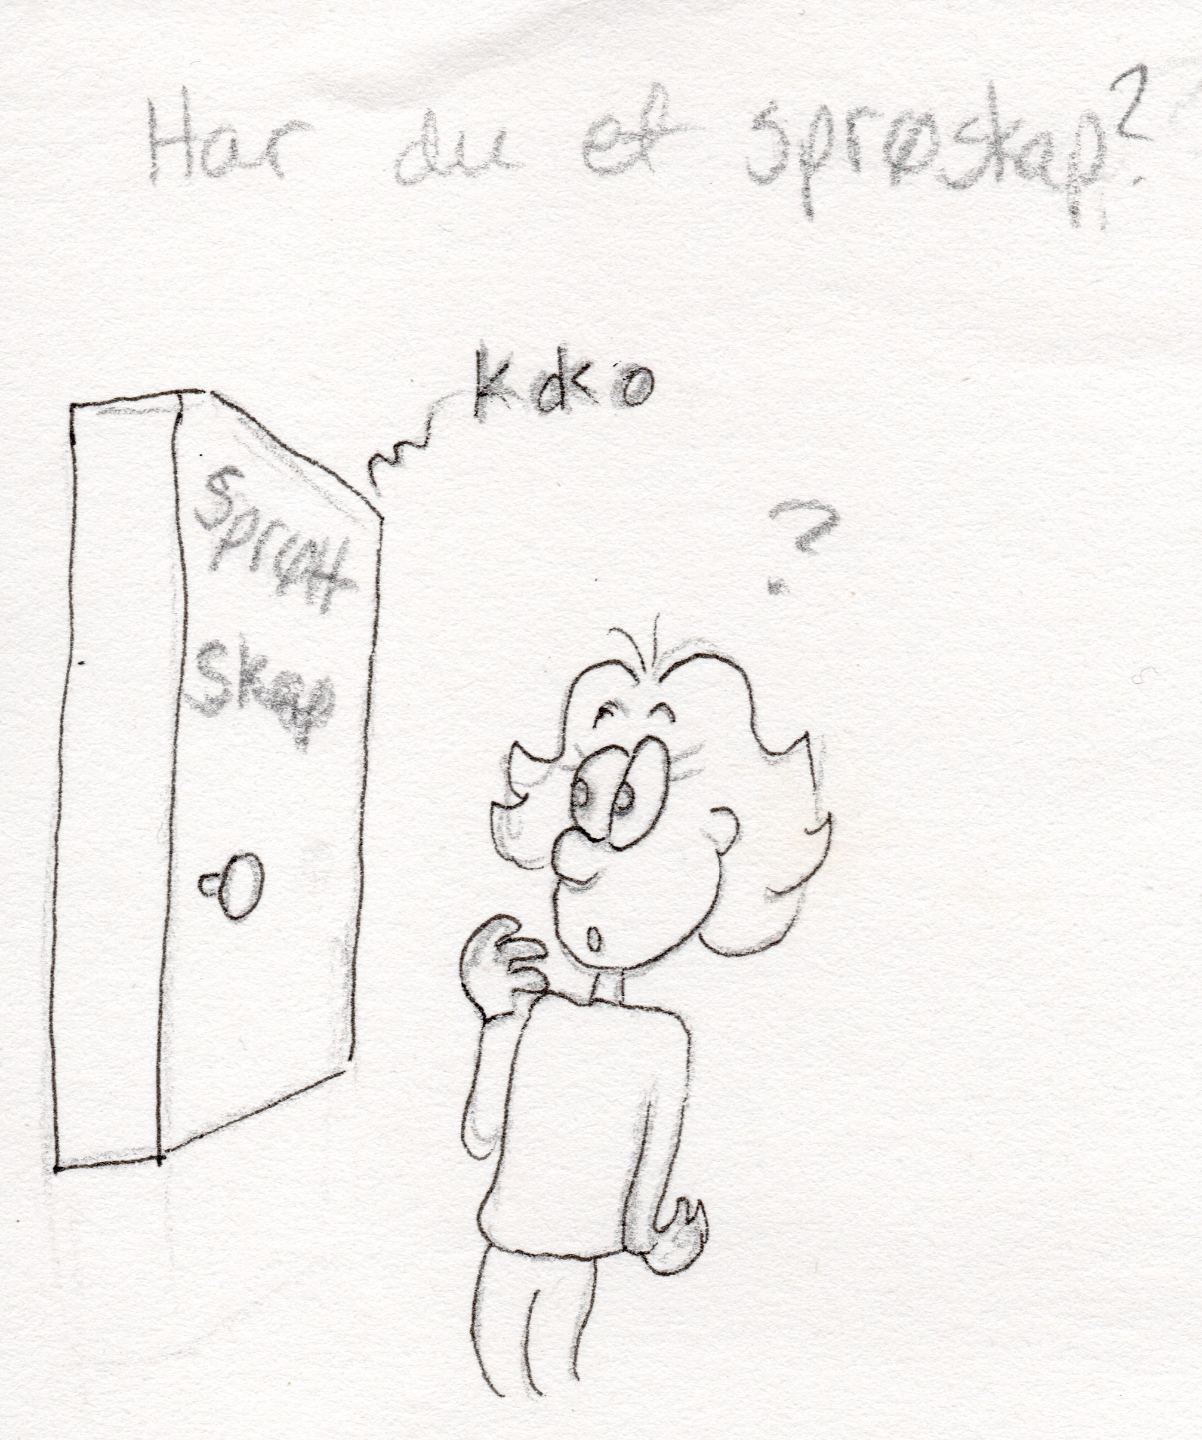 Har du et sprøskap?
Koko
?
Sprøtt
Skap